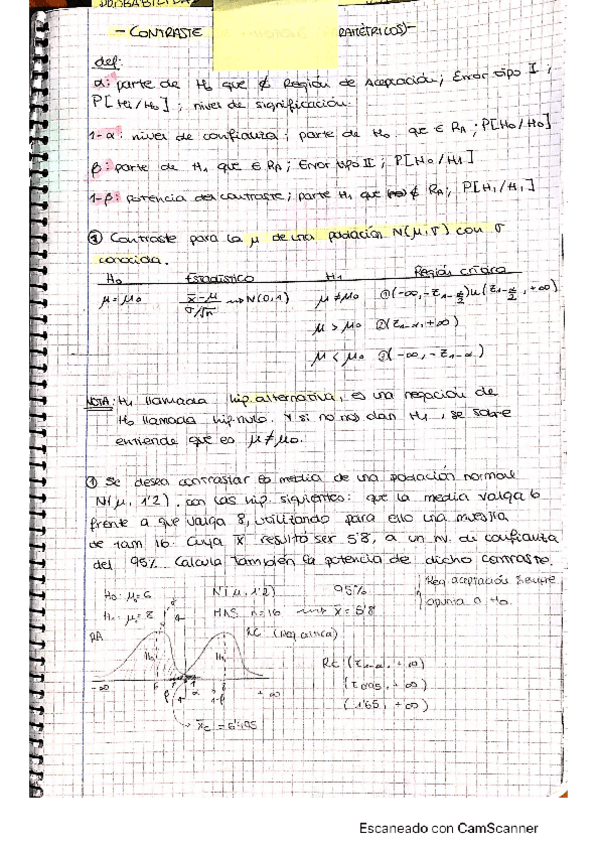 PROBABILIDA
- CONTRASTE RAMÉTRICOS)-
def:
α: parte de H₀ que ∉ Región de Aceptación; Error tipo I;
P[H₁/H₀]; nivel de significación.
1-α: nivel de confianza; parte de H₀ que ∈ RA; P[H₀/H₀]
β: parte de H₁ que ∈ RA; Error tipo II; P[H₀/H₁]
1-β: potencia del contraste; parte H₁ que ∉ RA; P[H₁/H₁]
① Contraste para la μ de una población N(μ,σ) con σ
conocida.
H₀ Estadístico H₁ Región crítica
μ=μ₀ x̄-μ / σ/√n ⟿ N(0,1) μ≠μ₀ ①(-∞,-z₁₋α/2)∪(z₁₋α/2,+∞)
μ>μ₀ ②(z₁₋α,+∞)
μ<μ₀ ③(-∞,-z₁₋α)
NOTA: H₁ llamada hip. alternativa, es una negación de
H₀ llamada hip. nula. Y si no nos dan H₁, se sobre
entiende que es μ≠μ₀.
① Se desea contrastar la media de una población normal
N(μ, 1'2), con las hip. siguientes: que la media valga 6
frente a que valga 8, utilizando para ello una muestra
de tam 16. Cuya x̄ resultó ser 5'8, a un niv. di confianza
del 95%. Calcula también la potencia de dicho contraste.
H₀: μ₀=6 N(μ, 1'2) 95% Reg. aceptación siempre
H₁: μ₁=8 MAS n=16 ⟿ x̄=5'8 apunta a H₀.
RA RC (Reg. crítica)
H₀ H₁ RC (z₁₋α, +∞)
-∞ β α 1-β +∞ (z₀'₉₅, +∞)
(1'65, +∞)
x̄c = 6'495
Escaneado con CamScanner